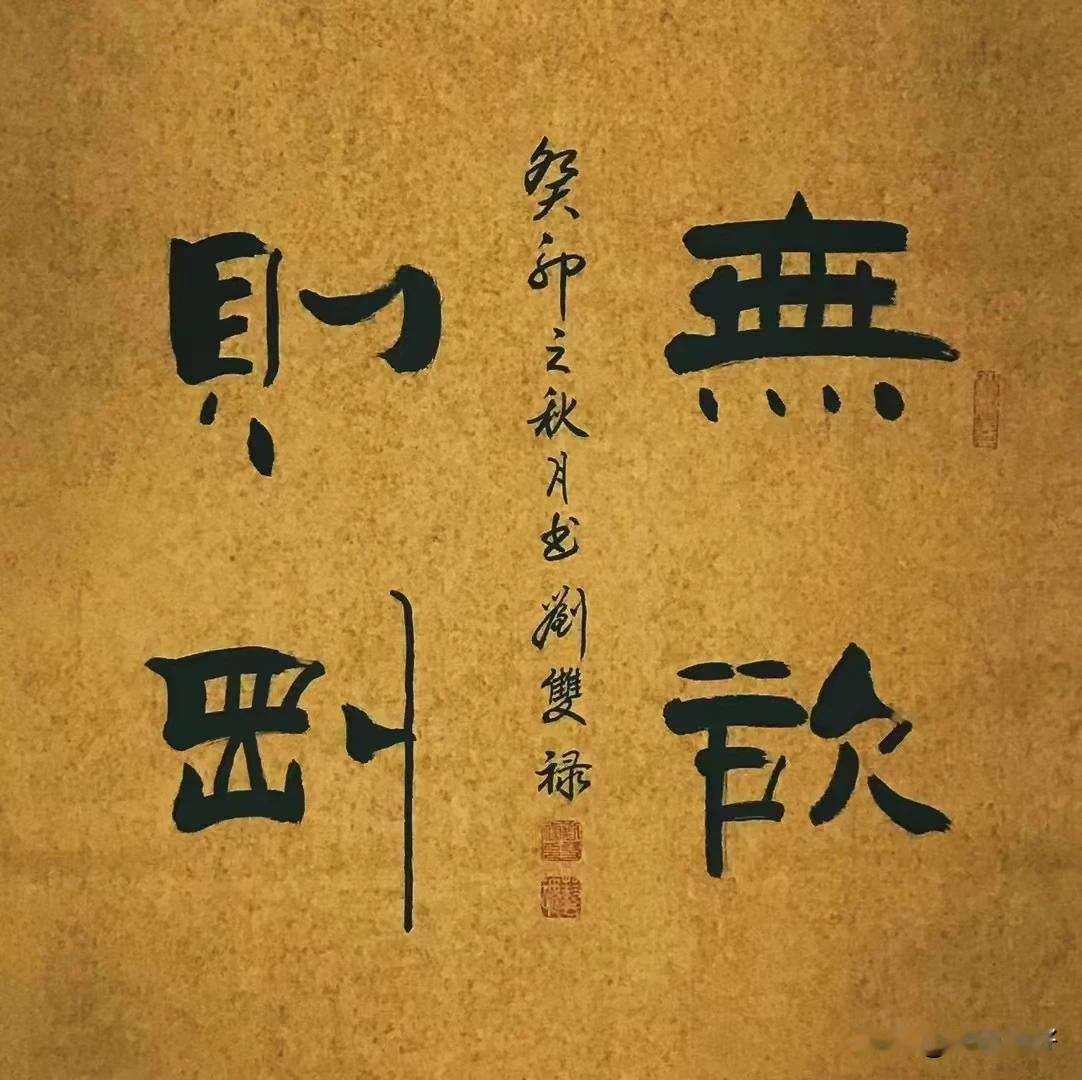 無欲
則剛
癸卯之秋月书劉雙禄